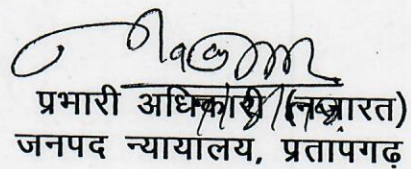 प्रभारी अधिकारी (नजारत)
जनपद न्यायालय, प्रतापगढ़